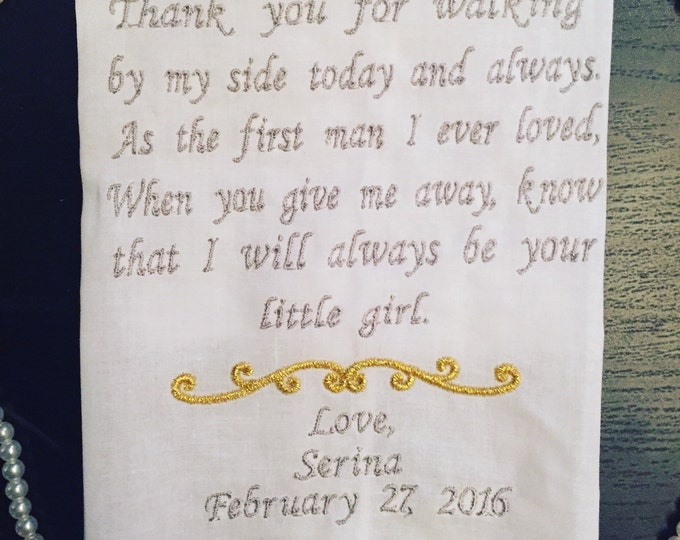 Thank you for walking
by my side today and always.
As the first man I ever loved,
When you give me away, know
that I will always be your
little girl.
Love,
Serina
February 27, 2016